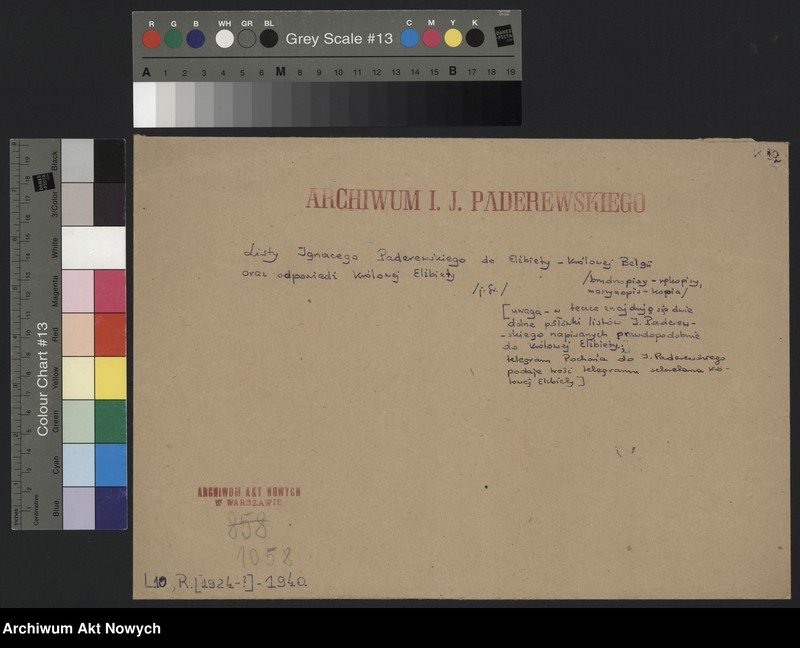 R G B WH GR BL Grey Scale #13 C M Y K
A 1 2 3 4 5 6 M 8 9 10 11 12 13 14 15 B 17 18 19
Colour Chart #13
Blue Cyan Green Yellow Red Magenta White 3/Color Black
Inches
Centimetres
2
ARCHIWUM I. J. PADEREWSKIEGO
Listy Ignacego Paderewskiego do Elżbiety - Królowej Belgii
oraz odpowiedzi Królowej Elżbiety
/brudnopisy - rękopisy,
maszynopis - kopia/
/j. fr./
[uwaga - w teczce znajdują się dwie
dolne połówki listów I. Paderew-
-skiego napisanych prawdopodobnie
do Królowej Elżbiety;
telegram do I. Paderewskiego
podaje treść telegramu sekretarza Kró-
lowej Elżbiety]
ARCHIWUM AKT NOWYCH
W WARSZAWIE
858
1058
L.10, R. [1924-?] - 1940.
Archiwum Akt Nowych